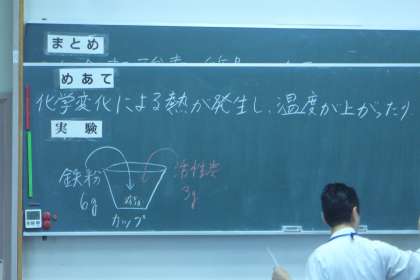 まとめ
めあて
化学変化による熱が発生し、温度が上がったり
実験
鉄粉
6g
活性炭
3g
カップ